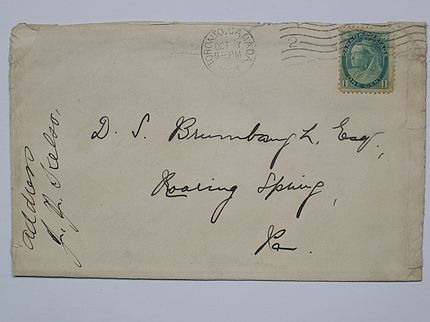 TORONTO, CANADA
OCT
9-PM
2
1 ONE CENT 1
D. S. Brumbaugh, Esq,
Roaring Spring,
Pa.
Address
J. J. Kelso,